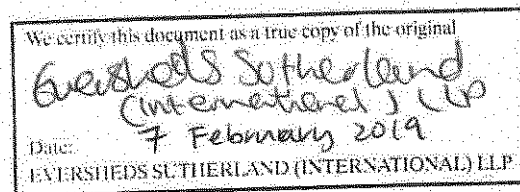 We certify this document as a true copy of the original
Eversheds Sutherland
(International) LLP
Date: 7 February 2019
EVERSHEDS SUTHERLAND (INTERNATIONAL) LLP